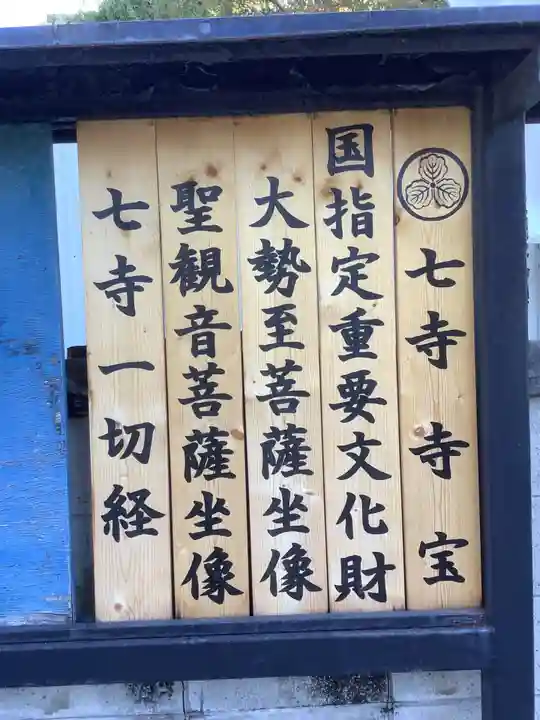 七寺寺宝
国指定重要文化財
大勢至菩薩坐像
聖観音菩薩坐像
七寺一切経